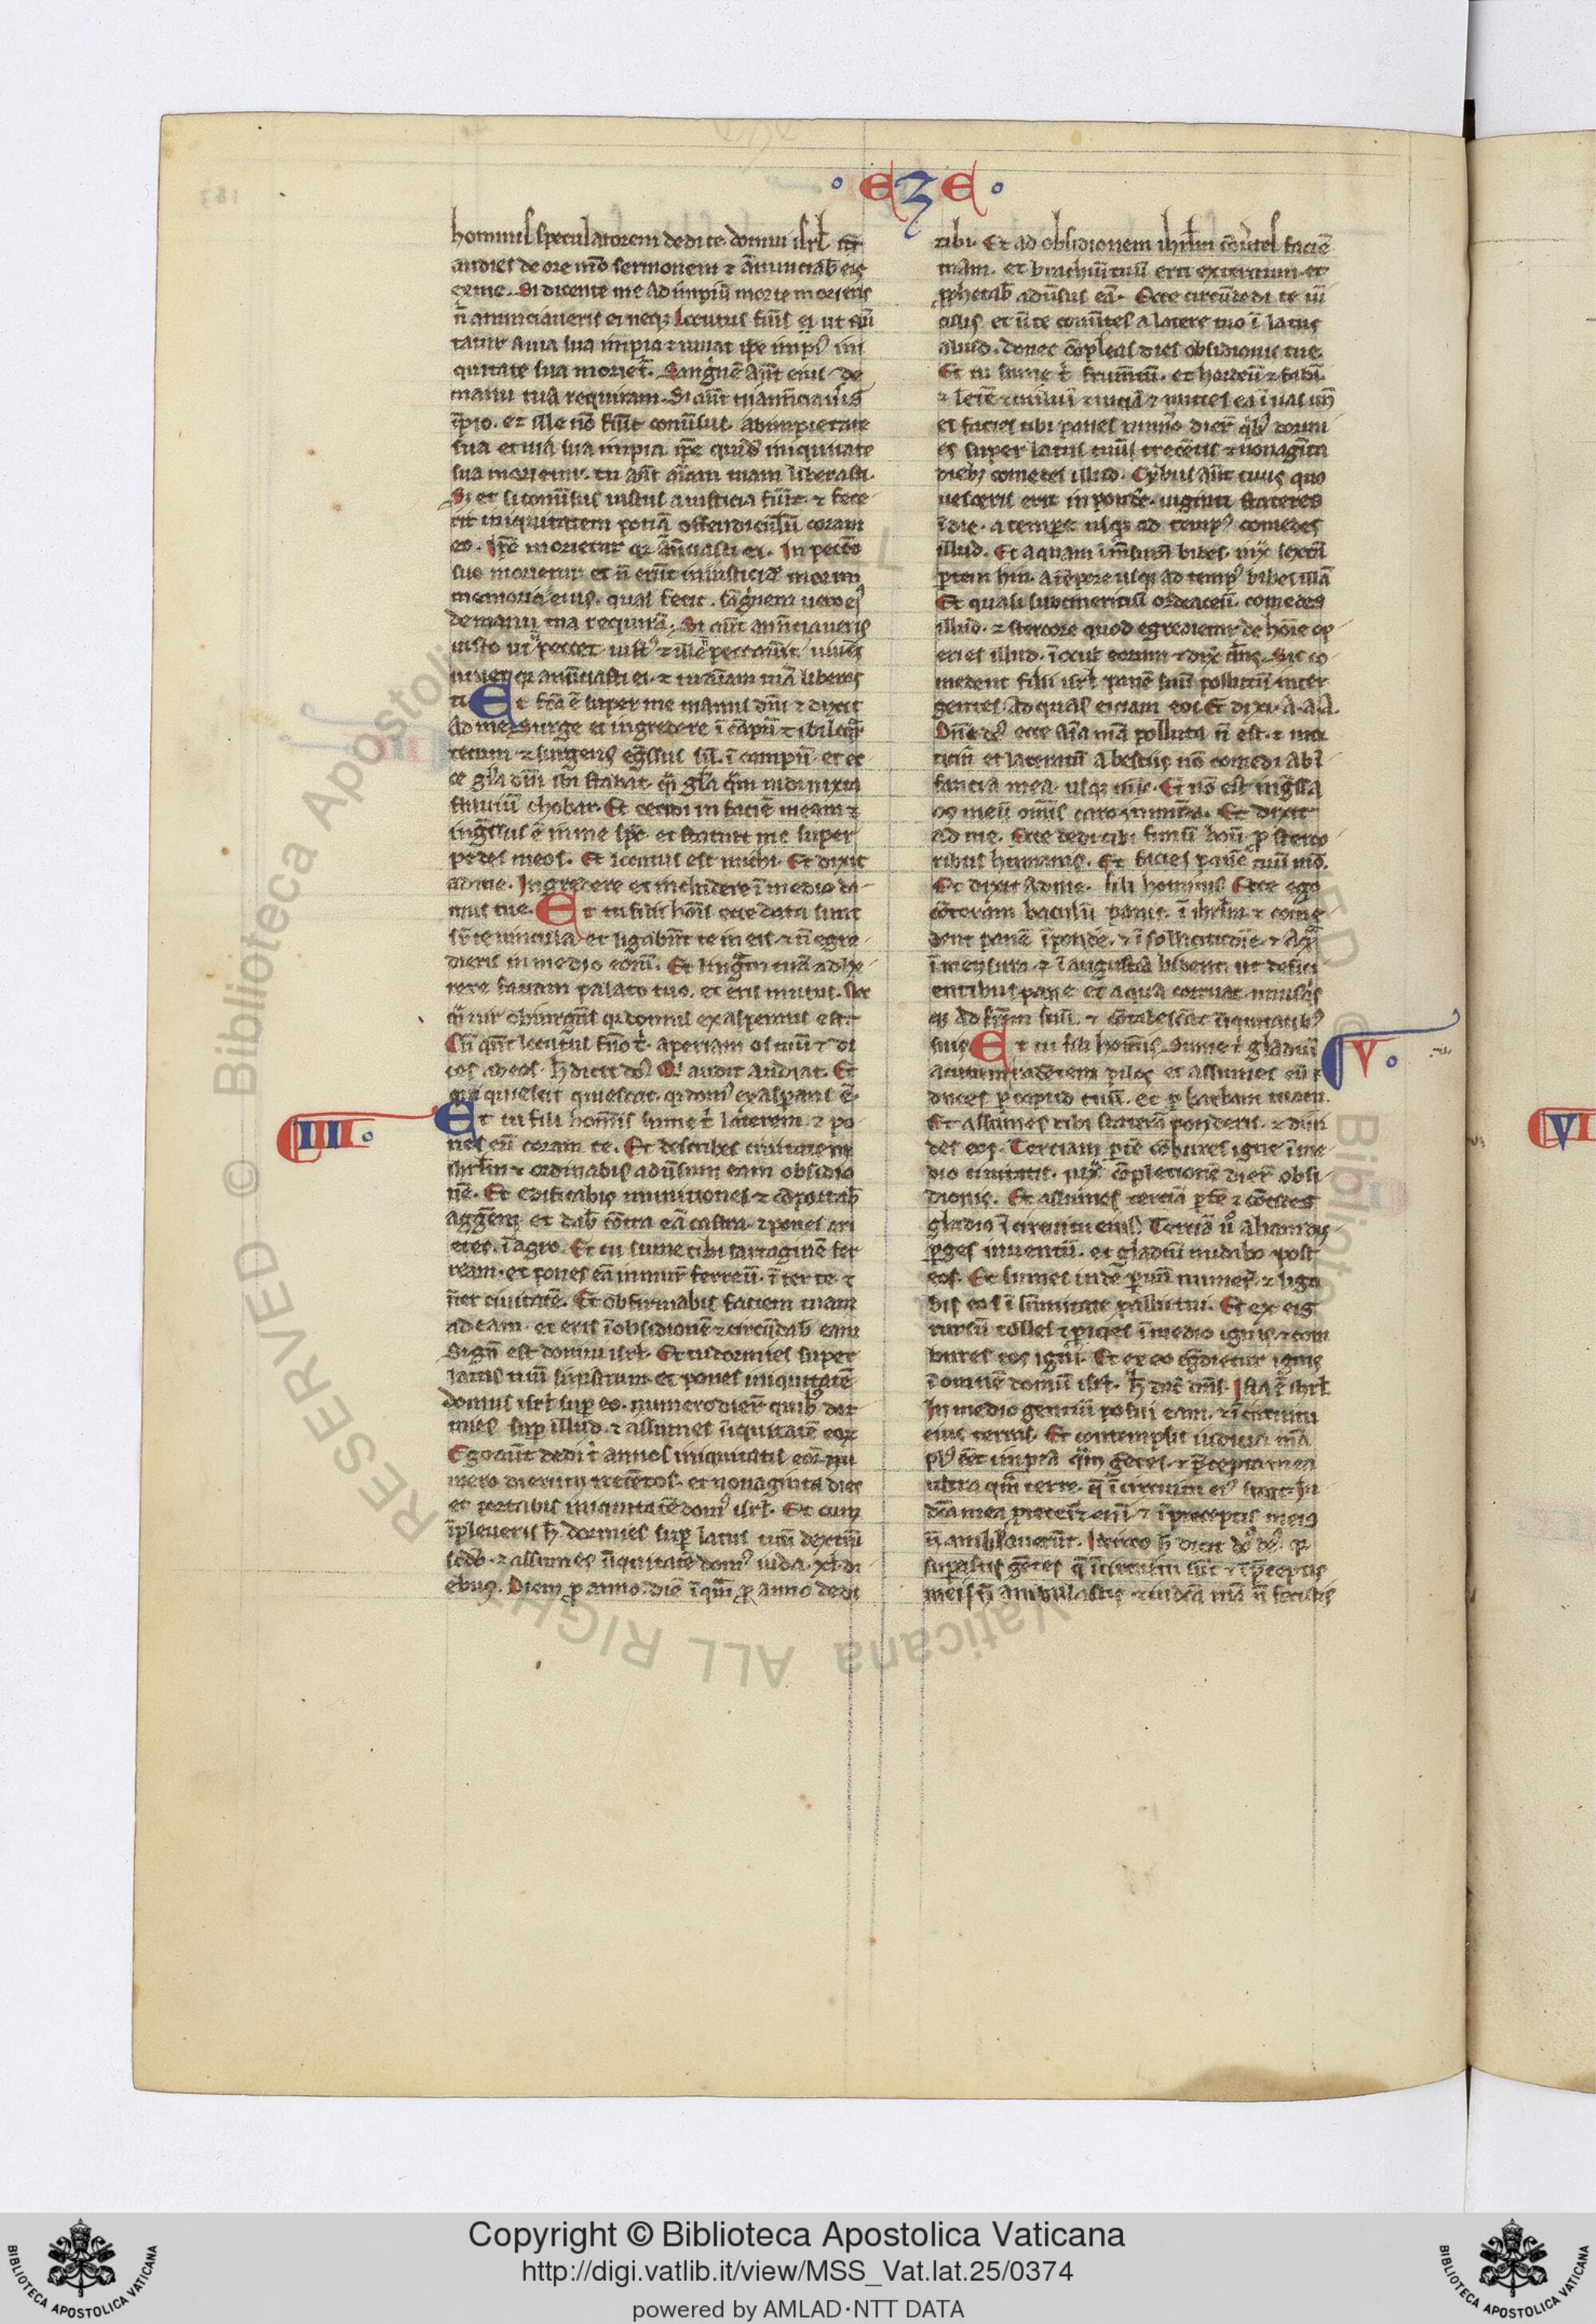 · eze ·
hominis speculatorem dedi te domui isrl̅. et
audies de ore mo̅ sermonem ⁊ a̅nunciab̅ eis
ex me. Si dicente me ad impiu̅ morte morieris
n̅ anunciaveris ei neq; locutus fu̅is ei ut au̅
tatur a via sua impia ⁊ vivat ip̅e impi᾿ ini
quitate sua moriet̅. Sang̅ne̅ aut̅ eius de
manu tua requiram. Si aut̅ tu an̅nciav̅is
i̅pio. et ille no̅ fu̅it conu̅sus ab impietate
sua et via sua impia. ip̅e quid̅ iniquitate
sua morietur. tu aut̅ a̅i̅am tuam liberasti.
Si et si conu̅sus iustus a iusticia fu̅it. ⁊ fece
rit iniquitatem pona̅ offendiculu̅ coram
eo. Ip̅e morietur qr̅ a̅n̅u̅ciasti ei. In pecc̅o
suo morietur et n̅ eru̅t in iusticie̅ morum
memoria eius. quas fecit. sa̅g̅nem vero ei᾿
de manu tua requira̅. Si aut̅ ann̅ciaveris
iusto ut n̅ peccet iust᾿ ⁊ ille n̅ peccav̅it vive̅s
vivet qr̅ annu̅ciasti ei. ⁊ tu a̅i̅am tua̅ liberas
ti Et fc̅a e̅ super me manus dn̅i ⁊ dixit
ad me. Surge et ingredere i̅ ca̅pu̅ ⁊ ibi loq̅r
tecum ⁊ surgens eg̅ssus su̅. i̅ campu̅. et ec
ce gl̅a dn̅i ibi stabat. q̅i gl̅a q̅m vidi iuxta
fluviu̅ chobar. Et cecidi in facie̅ meam ⁊
ing̅ssus e̅ in me sp̅c et statuit me super
pedes meos. Et locutus est michi. Et dixit
ad me. Ingredere et includere i̅ medio do
mus tue. Et tu fili ho̅is ecce data sunt
sr̅ te vincula et ligabu̅t te in eis. ⁊ n̅ egre
dieris in medio eoru̅. Et lingua̅ tua̅ adhe
rere faciam palato tuo. et eris mutus. Nec
q̅i vir obiurga̅s q̅ domus exasperans est.
Cu̅ aut̅ locutus fu̅o t̅. aperiam os tuu̅ ⁊ di
ces ad eos. h̅ dicit ds̅. Q̅ audit audiat. Et
qui quiescit quiescat. q̅ dom᾿ exaspans e̅.
IIII. Et tu fili hominis sume t̅ laterem. ⁊ po
nes eu̅ coram te. Et describes civitatem
ihrl̅m ⁊ ordinabis adu̅sum eam obsidio
ne̅. Et edificabis munitiones ⁊ co̅portab̅
agge̅em et dab̅ co̅tra ea̅ castra. ⁊ pones ari
etes i̅ agro. Et tu sume tibi sartagine̅ fer
ream. et pones ea̅ in mur̅ ferreu̅. i̅ter te ⁊
i̅ter civitate̅. Et obfirmabis faciem tuam
ad eam. et erit i̅ obsidione̅ ⁊ circu̅dab̅ eam
Signu̅ est domui isrl̅. Et tu dormies super
latus tuu̅ sinistrum. et pones iniquitate̅
domus isrl̅ sup eo. numero dier̅ quib᾿ dor
mies sup illud. ⁊ assumes i̅iquitate̅ eor̅
Ego aut̅ dedi t̅ annos iniquitatis eor̅. nu
mero dierum trece̅tos. et nonaginta dies
et portabis iniquitate̅ dom᾿ isrl̅. Et cum
i̅pleveris h̅ dormies sup latus tuu̅ dextru̅
sc̅do. ⁊ assumes i̅iquitate̅ dom᾿ iuda. xl. di
ebus. Diem p̅ anno. die̅ i̅q̅m p̅ anno dedi
tibi. Et ad obsidionem ihrl̅m co̅v̅tes facie̅
tuam. et brachiu̅ tuu̅ erit extentum. et
p̅phetab̅ adu̅sus ea̅. Ecce circu̅dedi te vi̅
culis et n̅ te conv̅tes a latere tuo i̅ latus
aliud. donec co̅pleas dies obsidionis tue.
Et tu sume t̅ frum̅tu̅. et hordeu̅ ⁊ faba̅.
⁊ lente̅ ⁊ miliu̅ ⁊ vicia̅ ⁊ mittes ea i̅ vas un̅
et facies tibi panes num̅o dier̅ q̅b᾿ dormi
es super latus tuu̅. trece̅tis ⁊ nonaginta
dieb᾿ comedes illud. Cybus aut̅ tuus quo
vesceris erit in ponde̅. viginti stateres
i̅ die. a tempe̅ usq; ad temp᾿ comedes
illud. Et aquam i̅ m̅sura̅ bibes. vi̅ sexta̅
ptem hin. a te̅pore usq; ad temp᾿ bibes illa̅
Et quasi subcinericiu̅ ordeaceu̅. comedes
illud. ⁊ stercore quod egredietur de ho̅ie op
eries illud. i̅ oculis eorum ⁊ dix̅ dn̅s. Sic co
medent filii isrl̅ pane̅ suu̅ pollutu̅ inter
gentes ad quas eiciam eos. Et dixi. A. A. A.
Dn̅e ds̅ ecce a̅i̅a m̅a polluta n̅ est. ⁊ mor
ticin̅ et laceratu̅ a bestiis no̅ comedi ab i̅
fancia mea usq; nu̅c. Et no̅ est ing̅ssa
os meu̅ omnis caro inmu̅da. Et dixit
ad me. Ecce dedi tibi fimu̅ bou̅ p̅ sterco
ribus humanis. Et facies pane̅ tuu̅ i̅ eo̅.
Et dixit ad me. fili hominis Ecce ego
co̅tera̅m baculu̅ panis. i̅ ihrl̅m ⁊ come
dent pane̅ i̅ ponde̅. ⁊ i̅ sollicitudi̅e. ⁊ aq̅m
i̅ mensura ⁊ i̅ angustia bibent. ut defici
entibus pane et aqua corruat unusq̅s
q; ad fr̅em suu̅. ⁊ co̅tabesca̅t i̅iquitatib᾿
suis Et tu fili hominis. Sume t̅ gladiu̅ V.
acutum radentem pilos et assumes eu̅ ⁊
duces p caput tuu̅. et p barbam tuam.
Et assumes tibi statera̅ ponderis. ⁊ divi
des eos. Terciam pte̅ co̅bures igne i̅ me
dio civitatis. iux̅ co̅pletione̅ dier̅ obsi
dionis. Et assumes tercia̅ pte̅ ⁊ co̅cides
gladio i̅ circuitu eius. Tercia̅ v᾿ aliam dis
pges in ventu̅. et gladiu̅ nudabo post
eos. Et sumes inde pvu̅ numer̅. ⁊ liga
bis eos i̅ su̅mitate pallii tui. Et ex eis
rursu̅ tolles ⁊ picies i̅ medio ignis. ⁊ com
bures eos igni. Et ex eo eg̅dietur ignis
i̅ omne̅ domu̅ isrl̅. h̅ dic̅ dn̅s. Ista e̅ ihrl̅
In medio gentiu̅ posui eam. ⁊ i̅ circuitu
eius terras. Et contempsit iudicia m̅a
ultra q̅m terre. q̅ i̅ circuitu ei᾿ sunt. Iu
dicia mea piecer̅t eni̅ ⁊ i̅ preceptis meis
n̅ ambulaveru̅t. Idcirco h̅ dicit dn̅s ds̅. q̅
supastis ge̅tes q̅ i̅ circuitu su̅t ⁊ i̅ p̅ceptis
meis n̅ ambulastis. ⁊ iudicia m̅a n̅ fecistis
VI
RESERVED © Biblioteca Apostolica Vaticana ALL RIGHTS
Copyright © Biblioteca Apostolica Vaticana
http://digi.vatlib.it/view/MSS_Vat.lat.25/0374
powered by AMLAD·NTT DATA
BIBLIOTECA APOSTOLICA VATICANA
BIBLIOTECA APOSTOLICA VATICANA